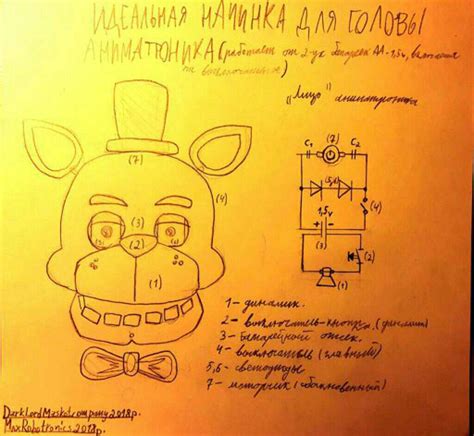 ИДЕАЛЬНАЯ НАЧИНКА ДЛЯ ГОЛОВЫ
АНИМАТРОНИКА (работает от 2-ух батареек АА-1,5v,
"Лицо" аниматроника
(7)
(4)
(3)
(2)
(1)
(7)
C1 C2
(5,6)
(4)
1,5v
(3)
(2)
(1)
1 - динамик.
2 - выключатель-кнопка (динамик)
3 - батарейный отсек.
4 - выключатель (главный)
5,6 - светодиоды
7 - моторчик (обыкновенный)
DarkLordMaskaCompany 2018 г.
MaxRobotronics 2018 г.